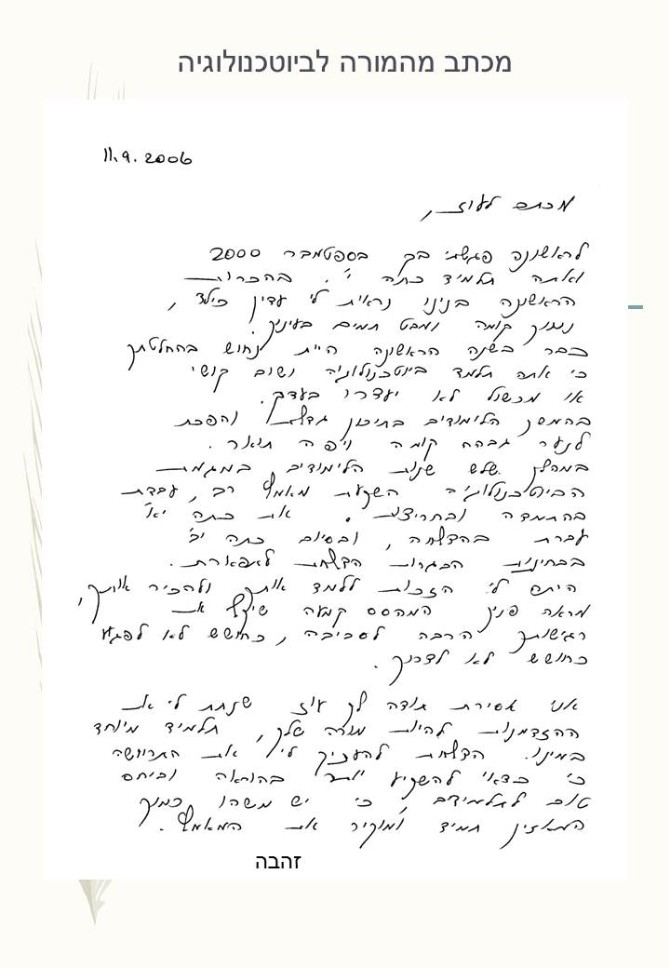 מכתב מהמורה לביוטכנולוגיה
11.9.2006
מכתב לעוז,
לראשונה פגשתי בך בספטמבר 2000
ואתה תלמיד כתה י'. בהכרות
הראשונה בנינו נראית לי עדין כילד,
נמוך קומה ומבט תמים בעיניך.
כבר בשנה הראשונה היית נחוש בהחלטתך
כי אתה תלמד ביוטכנולוגיה ושום קושי
או מכשול לא יעצרו בעדך.
בהמשך הלימודים בתיכון גדלת והפכת
לנער גבהה קומה ויפה תואר.
במהלך שלש שנות הלימודים במגמת
הביוטכנולוגיה השקעת מאמץ רב, עבדת
בהתמדה ובחריצות. את כתה יא'
עברת בהצלחה, ובסיום כתה יב'
בבחינות הבגרות הצלחת לתפארת.
היתה לי הזכות ללמד אותך ולהכיר אותך,
מראה פניך המהסס קמעה שיקף את
רגישותך הרבה לסביבה, כחושש לא לפגוע
כחושש לא לדרוך.
אני אסירת תודה לך עוז שנתת לי את
ההזדמנות להיות מורה שלך, תלמיד מיוחד
במינו. הצלחת להעניק לי את התחושה
כי כדאי להשקיע יותר בהוראה וביחס
טוב לתלמידים, כי יש משהו כמוך
המאזין תמיד ומוקיר את המאמץ.
זהבה